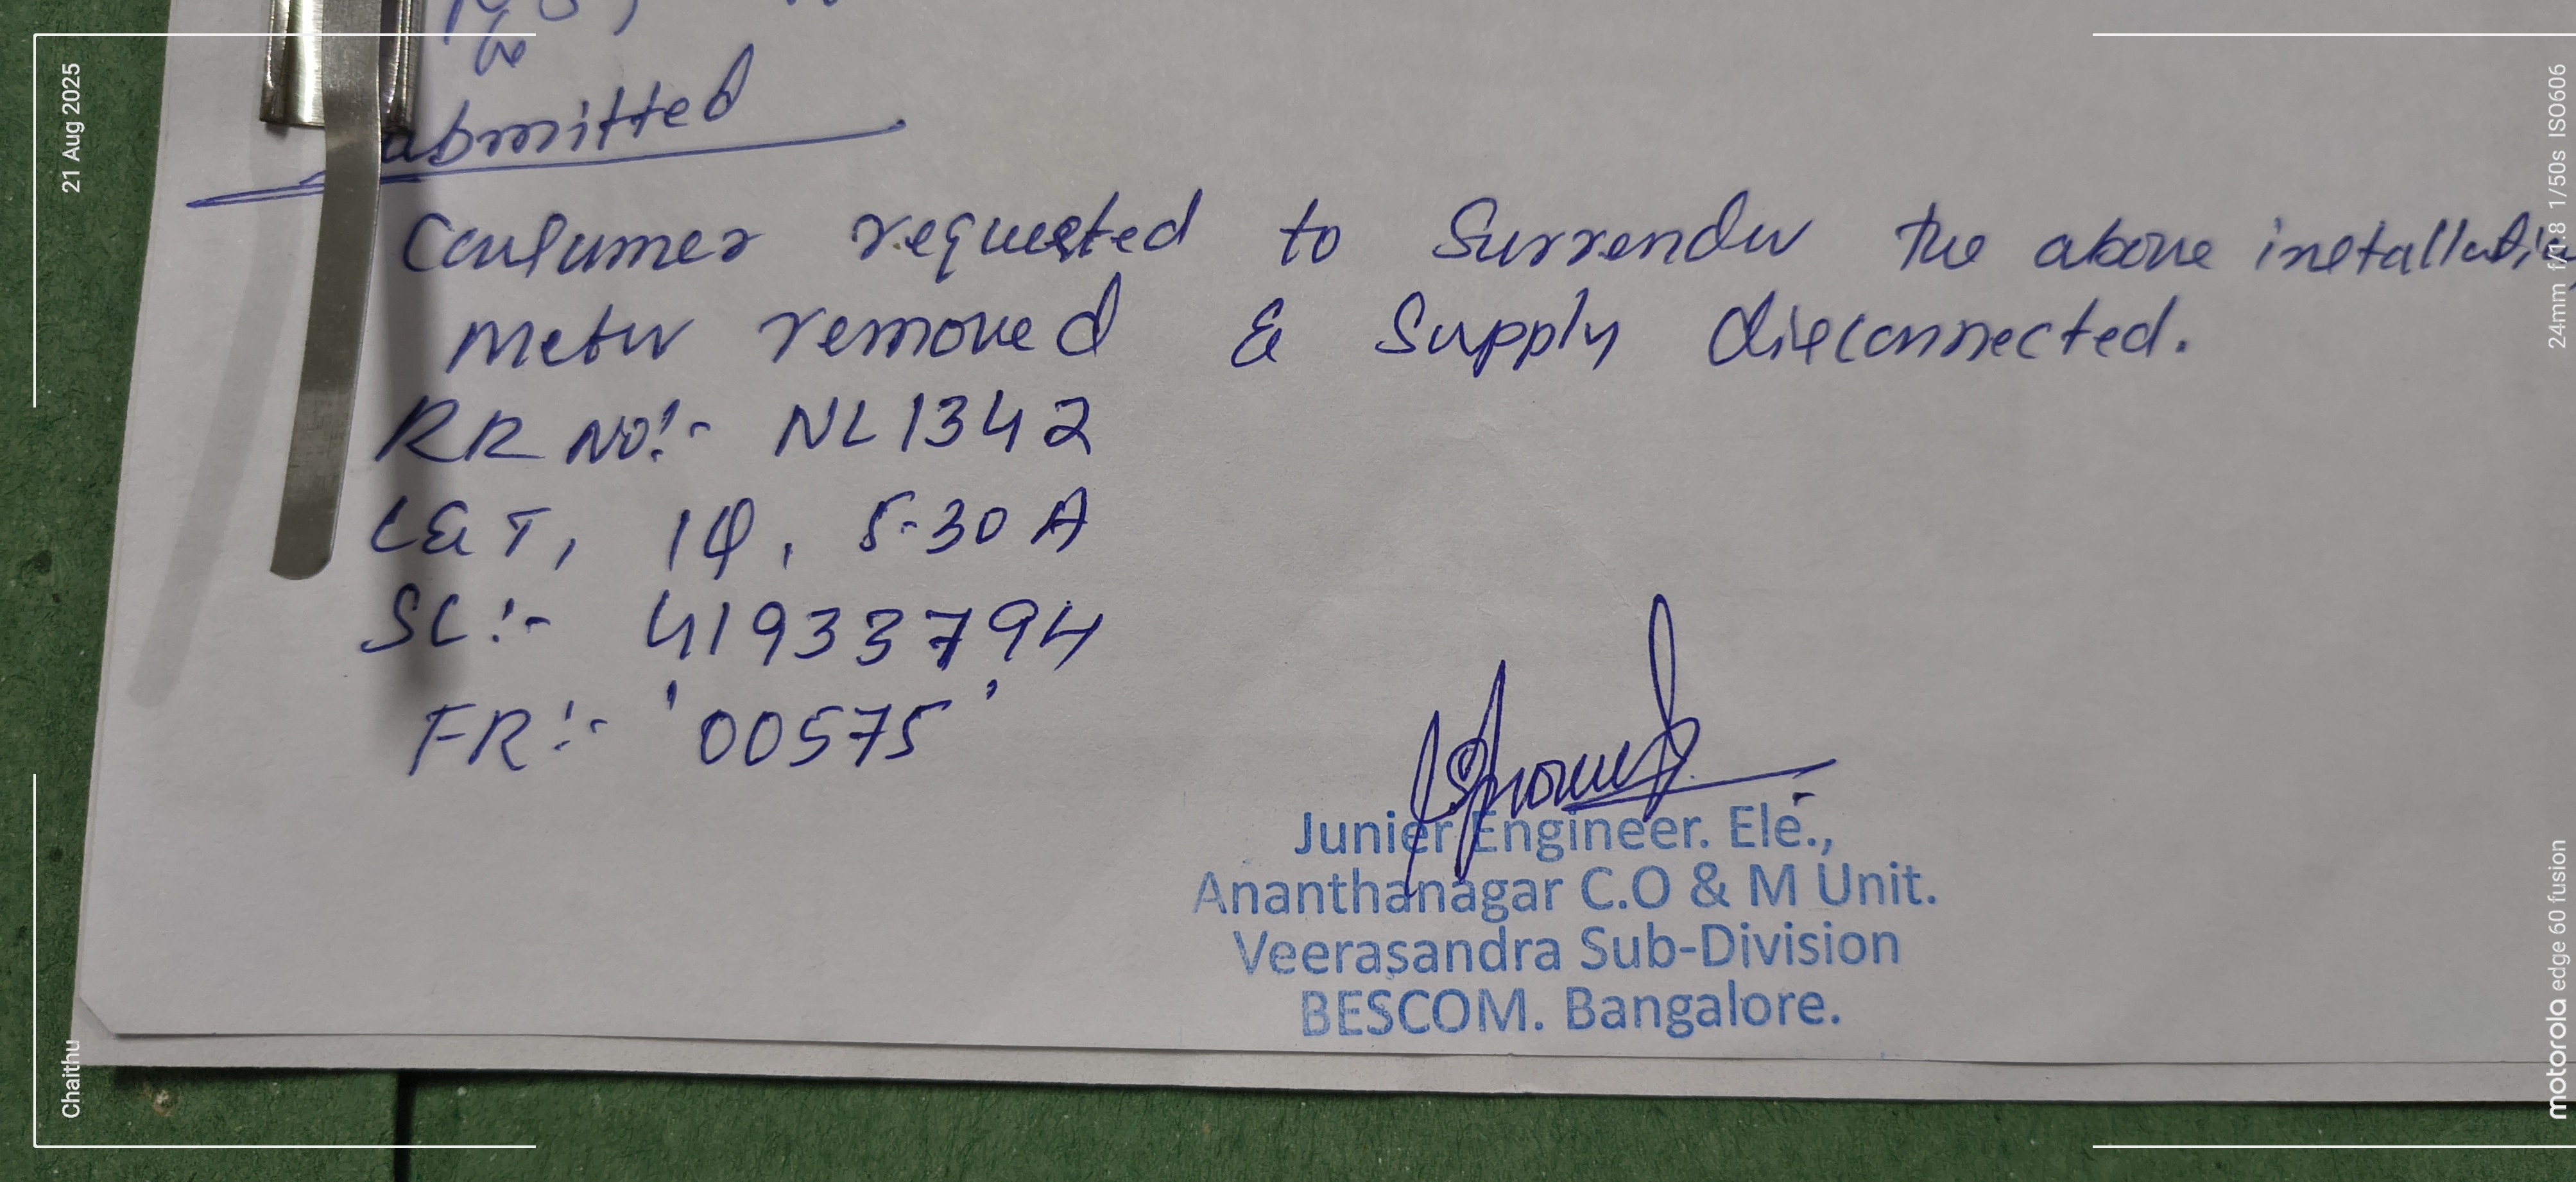 abmitted
Consumer requested to Surrender the above installatio
Meter removed & Supply disconnected.
RR NO:- NL1342
L&T, 1Φ, 5-30 A
SL:- 41933794
FR:- '00575'
Junier Engineer. Ele.,
Ananthanagar C.O & M Unit.
Veerasandra Sub-Division
BESCOM. Bangalore.
21 Aug 2025
Chaithu
24mm f/1.8 1/50s ISO606
motorola edge 60 fusion